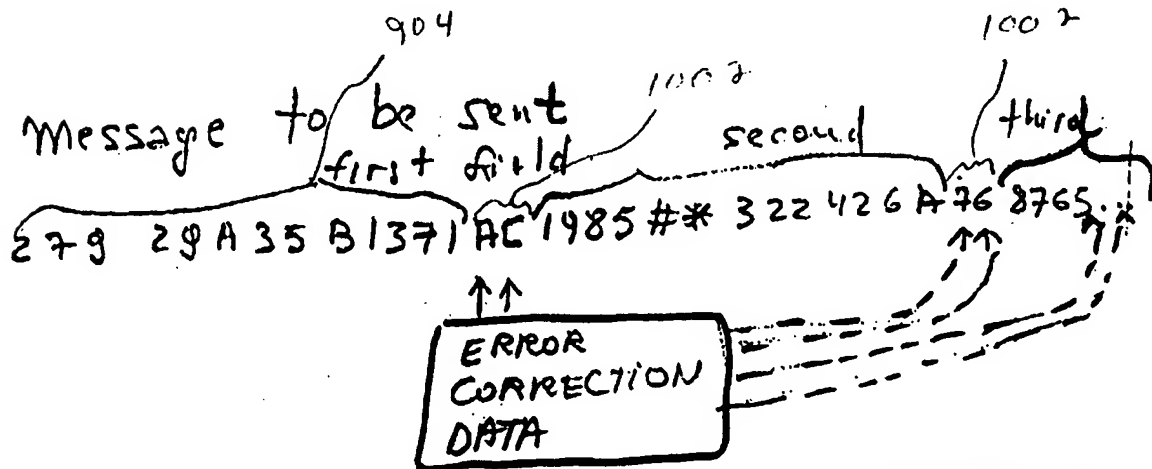 904
1002
1002
Message to be sent
first field second third
279 29A35B1371 AC 1985#* 322426A 76 8765
ERROR
CORRECTION
DATA